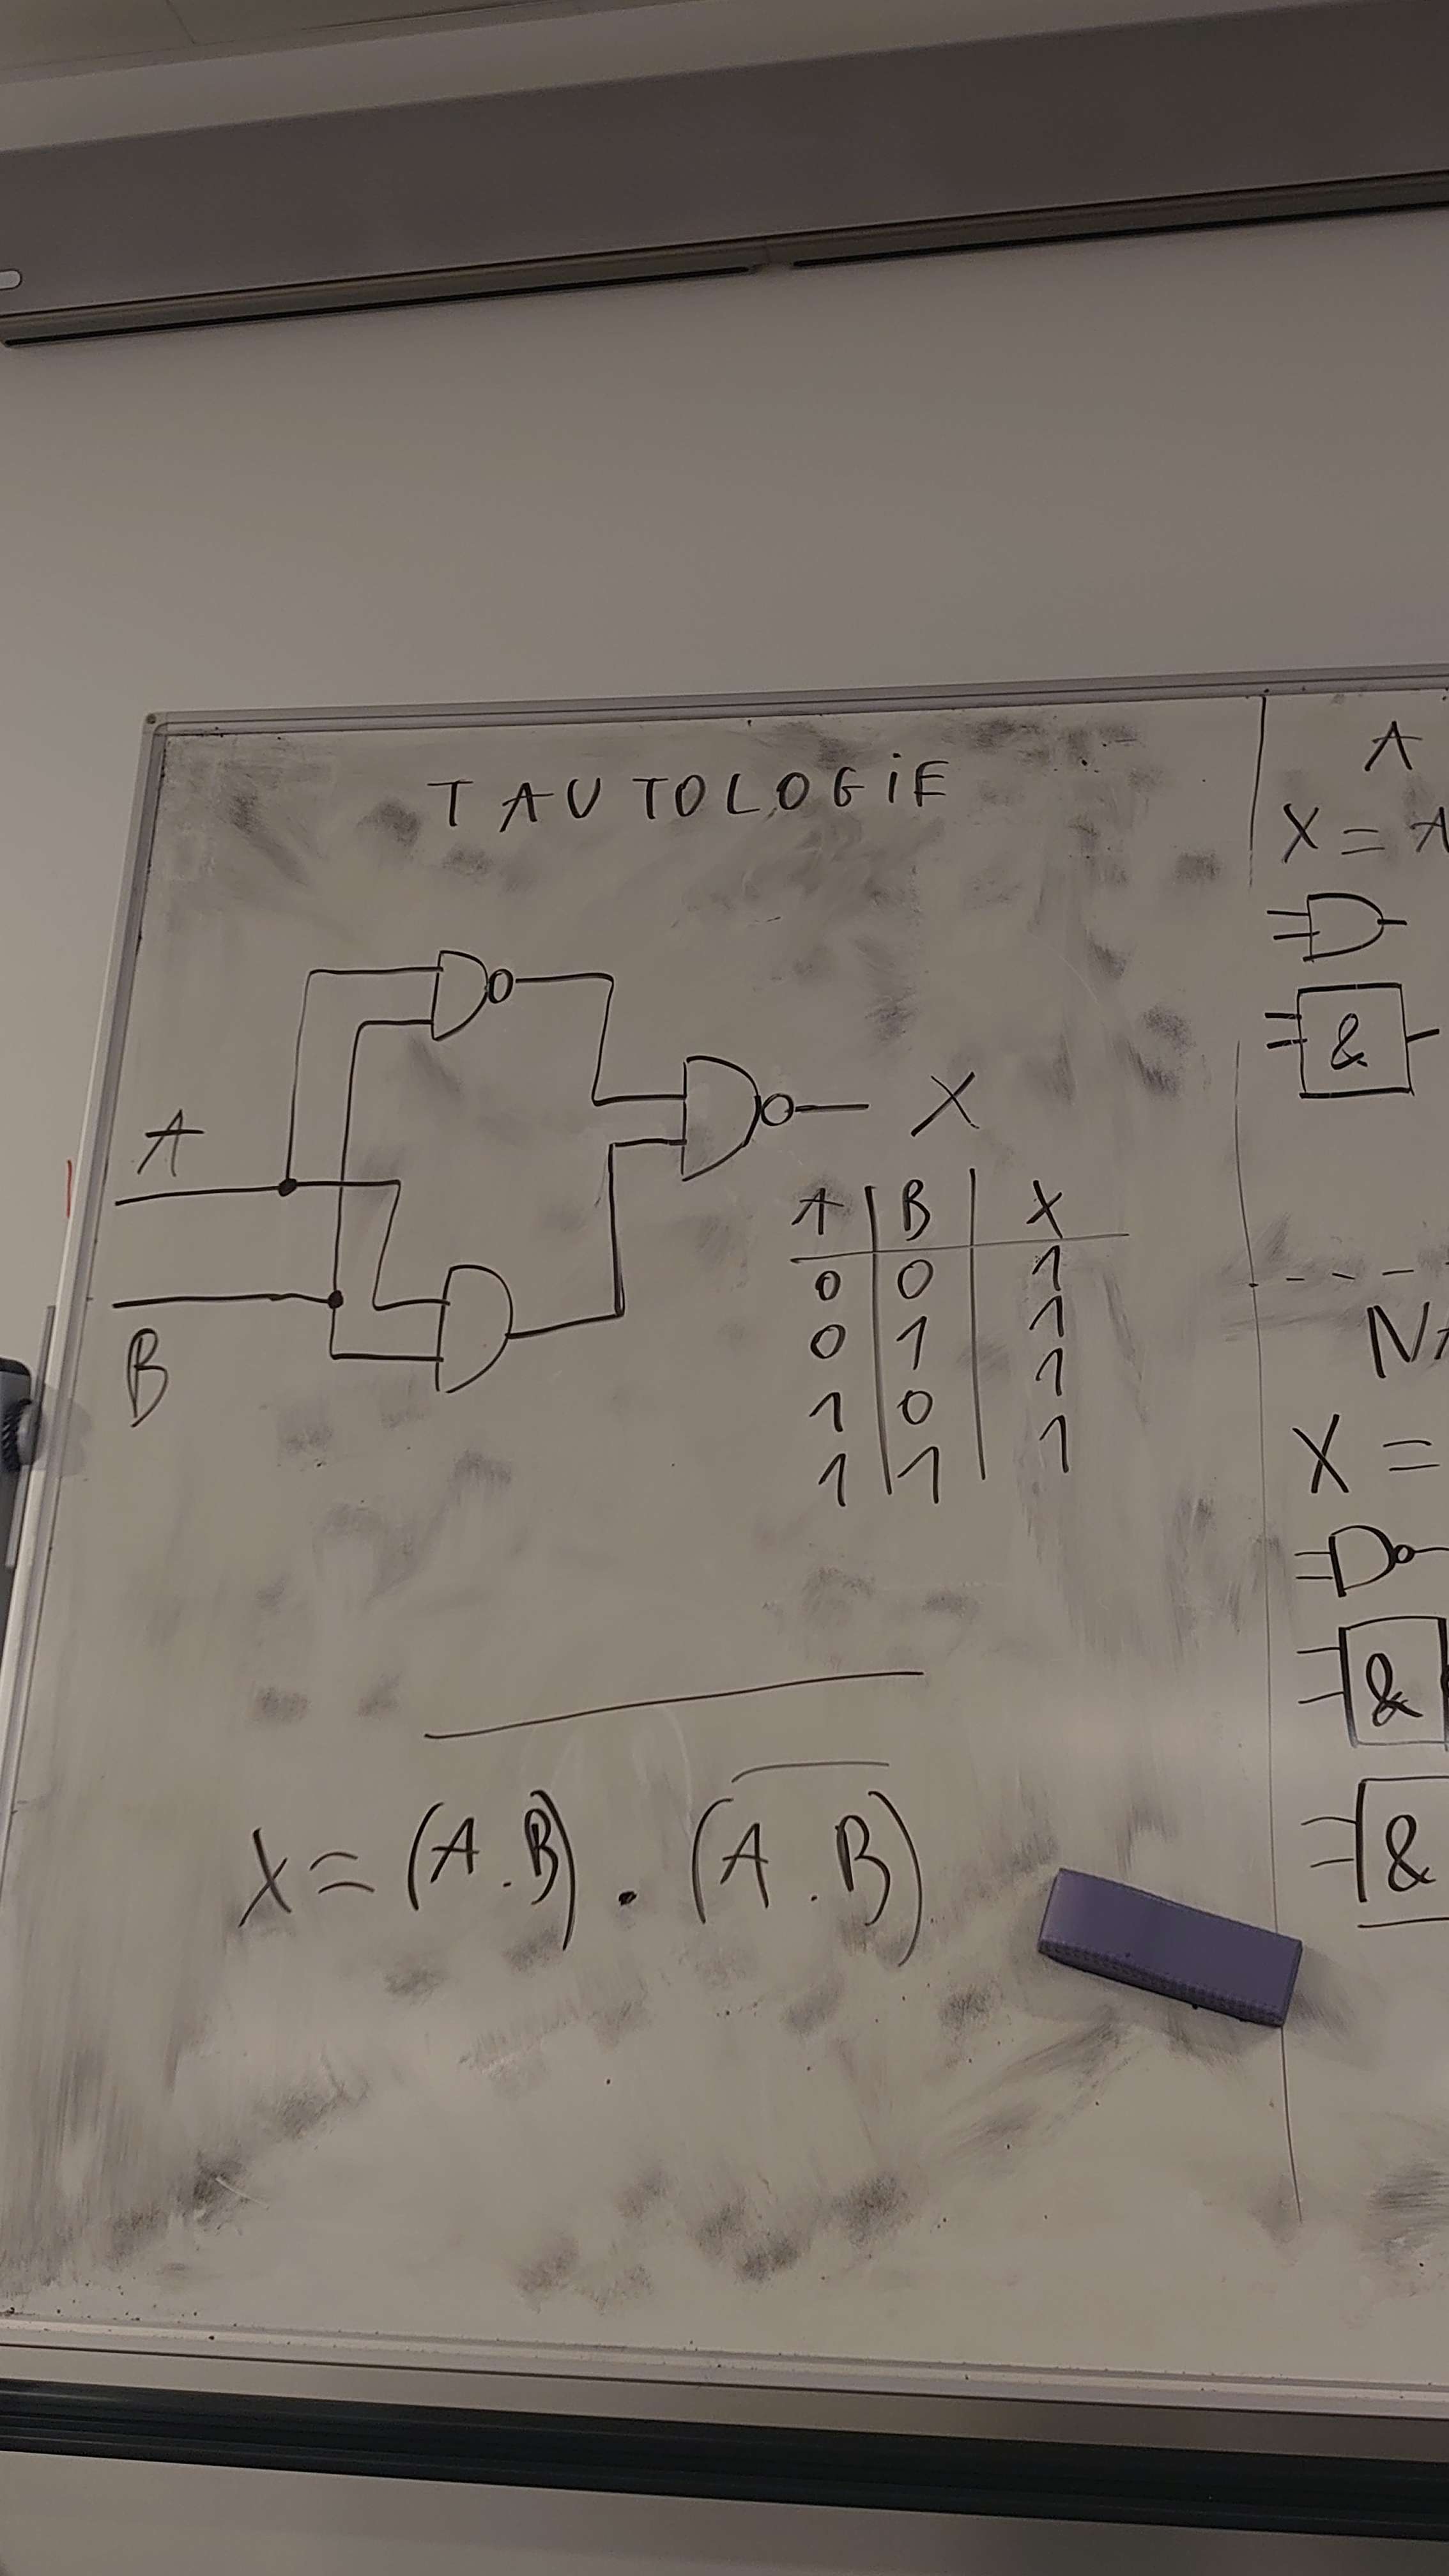 TAUTOLOGiE
A
B
X
A B X
0 0 1
0 1 1
1 0 1
1 1 1
X = (A.B) . (A.B)
A
X = A
&
X =
&
&